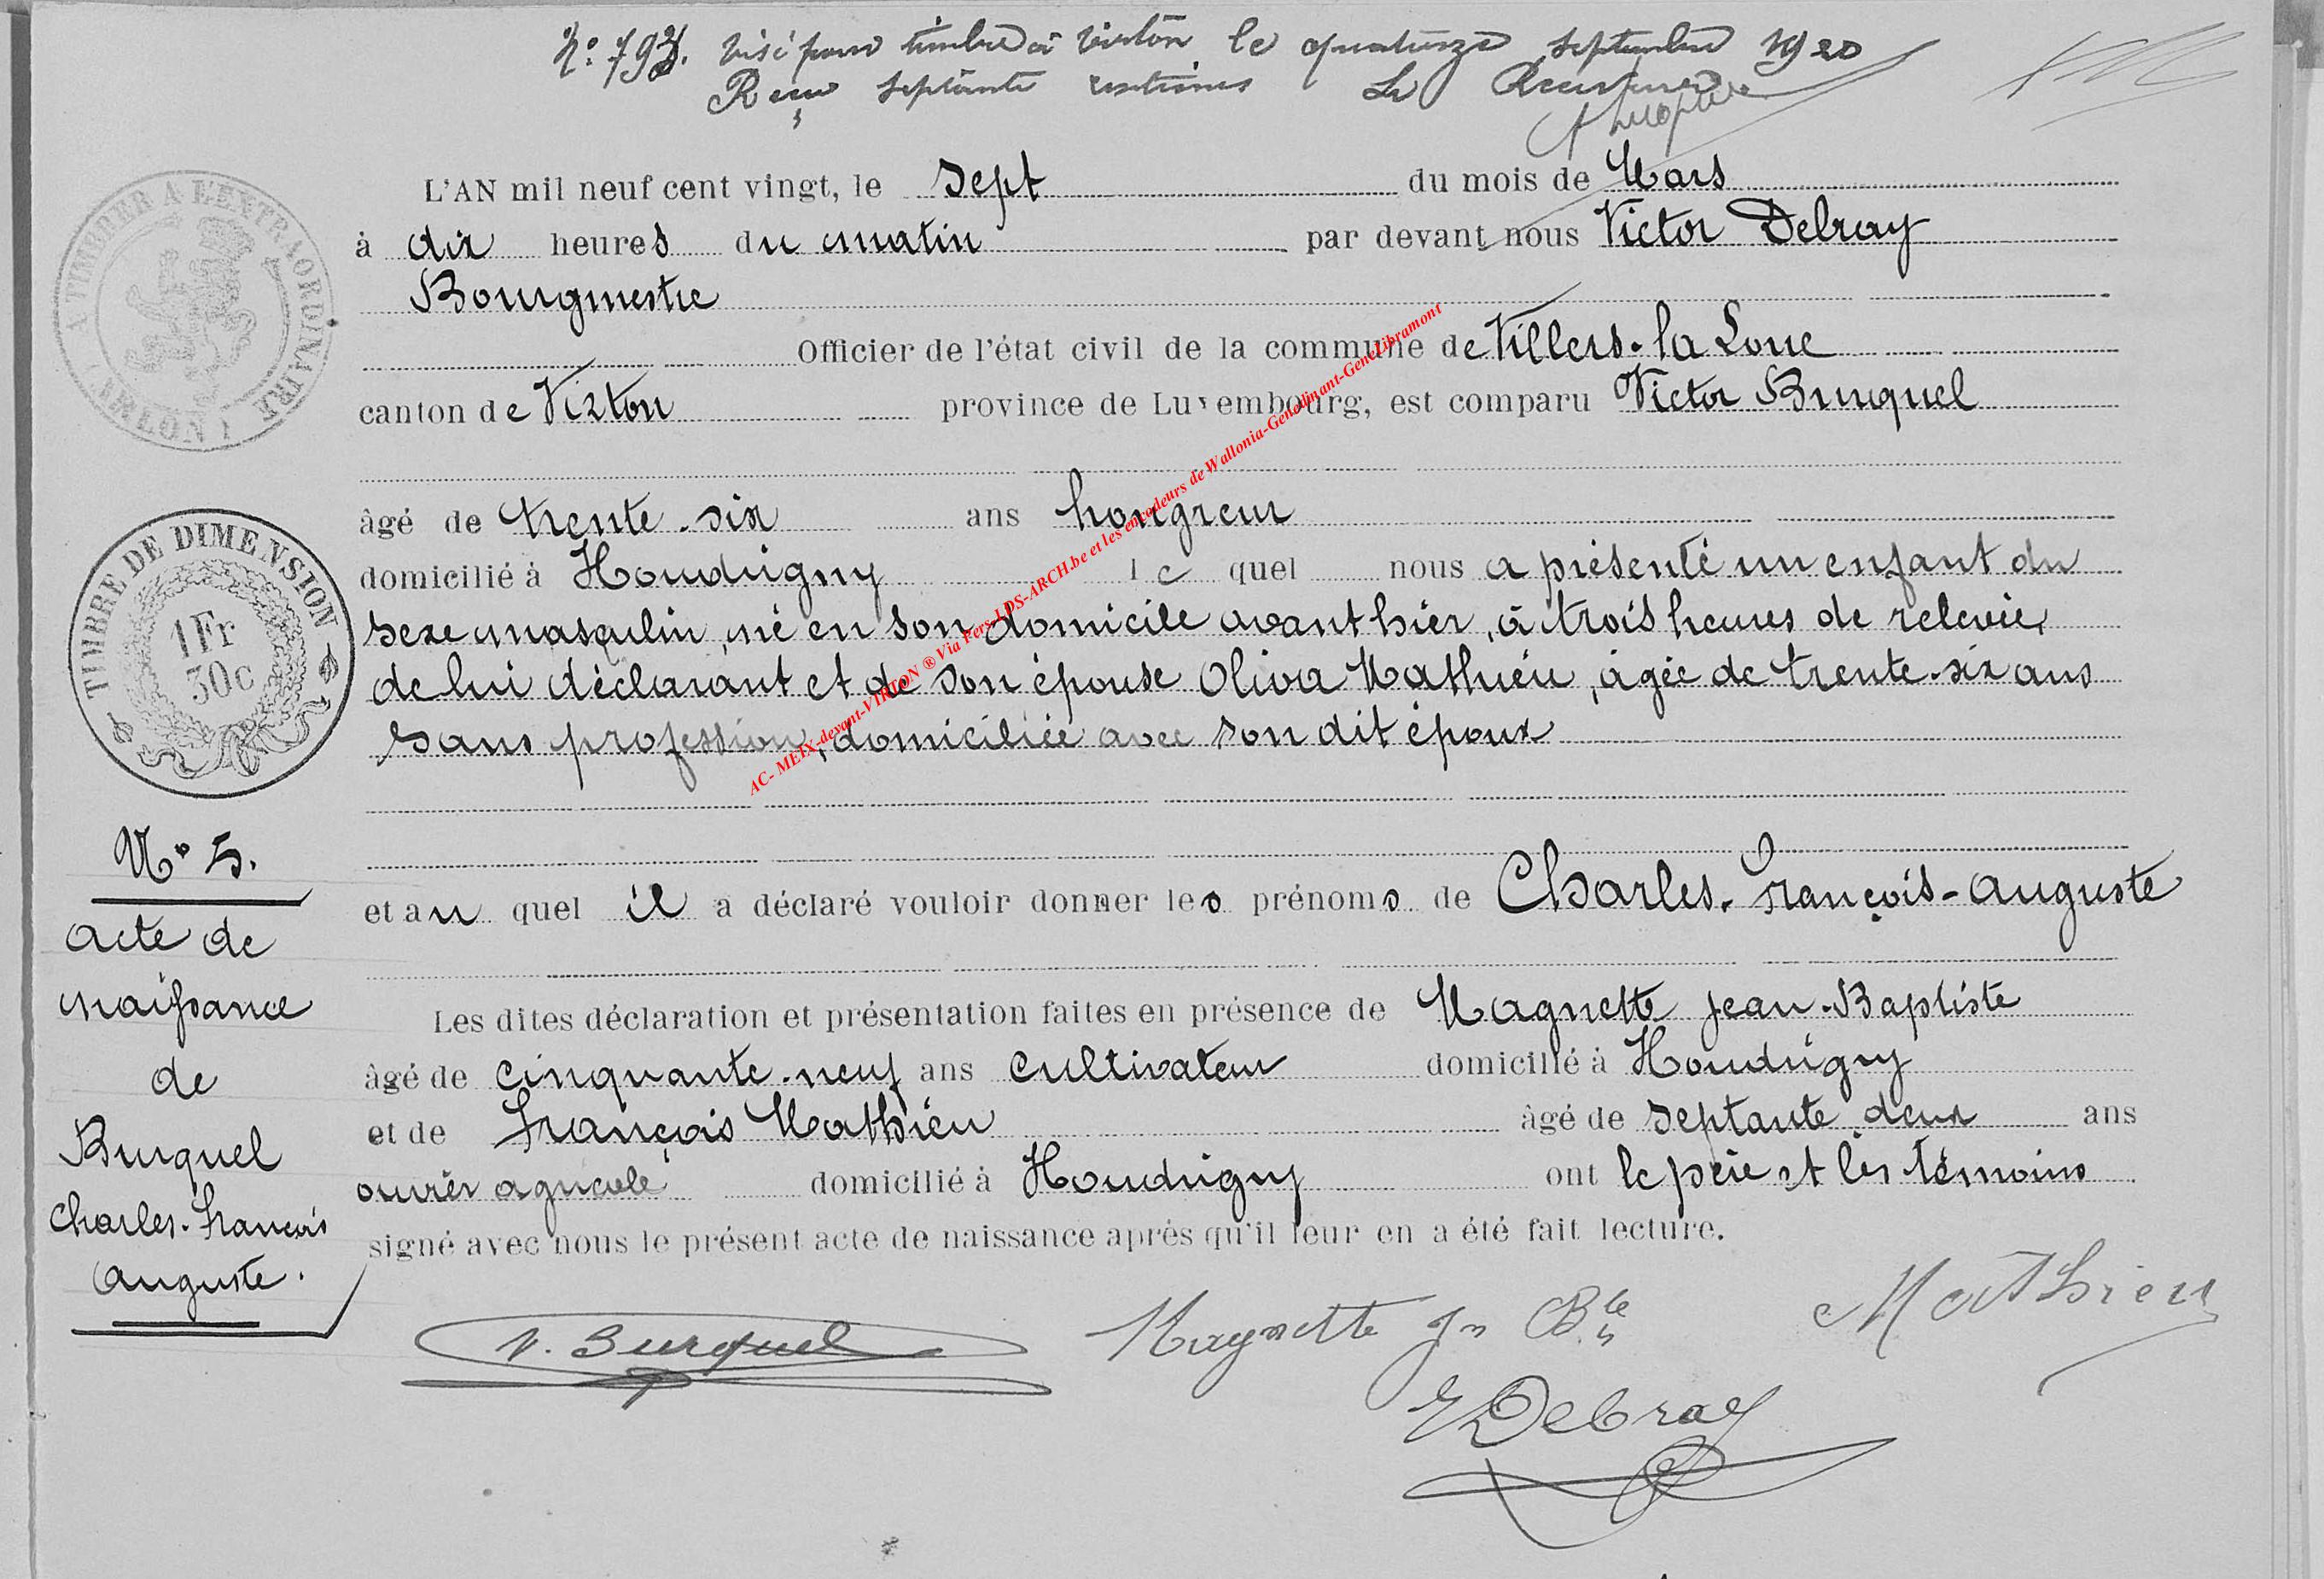 N° 793. Visé pour timbre à Virton le quatorze septembre 1920
Reçu septante centimes Le Receveur
L'AN mil neuf cent vingt, le sept du mois de Mars
à dix heures du matin par devant nous Victor Debray
Bourgmestre
Officier de l'état civil de la commune de Villers-la-Loue
canton de Virton province de Luxembourg, est comparu Victor Burquel
âgé de trente-six ans hongreur
domicilié à Houdrigny le quel nous a présenté un enfant du
sexe masculin, né en son domicile avant hier, à trois heures de relevée,
de lui déclarant et de son épouse Oliva Mathieu, âgée de trente-six ans
sans profession, domiciliée avec son dit époux
et au quel il a déclaré vouloir donner les prénoms de Charles-François-Auguste
Les dites déclaration et présentation faites en présence de Magnette Jean-Baptiste
âgé de cinquante-neuf ans cultivateur domicilié à Houdrigny
et de François Mathieu âgé de septante deux ans
ouvrier agricole domicilié à Houdrigny ont le père et les témoins
signé avec nous le présent acte de naissance après qu'il leur en a été fait lecture.
V. Burquel Magnette Jn Bte Mathieu
VDebray
A TIMBRER A L'EXTRAORDINAIRE
(ARLON)
TIMBRE DE DIMENSION
1 Fr
30c
N° 5.
Acte de
naissance
de
Burquel
Charles-François
Auguste.
AC- MEIX-devant-VIRTON ® Via Pers-LDS-ARCH.be et les encodeurs de Wallonia-Genedinant-GeneLibramont